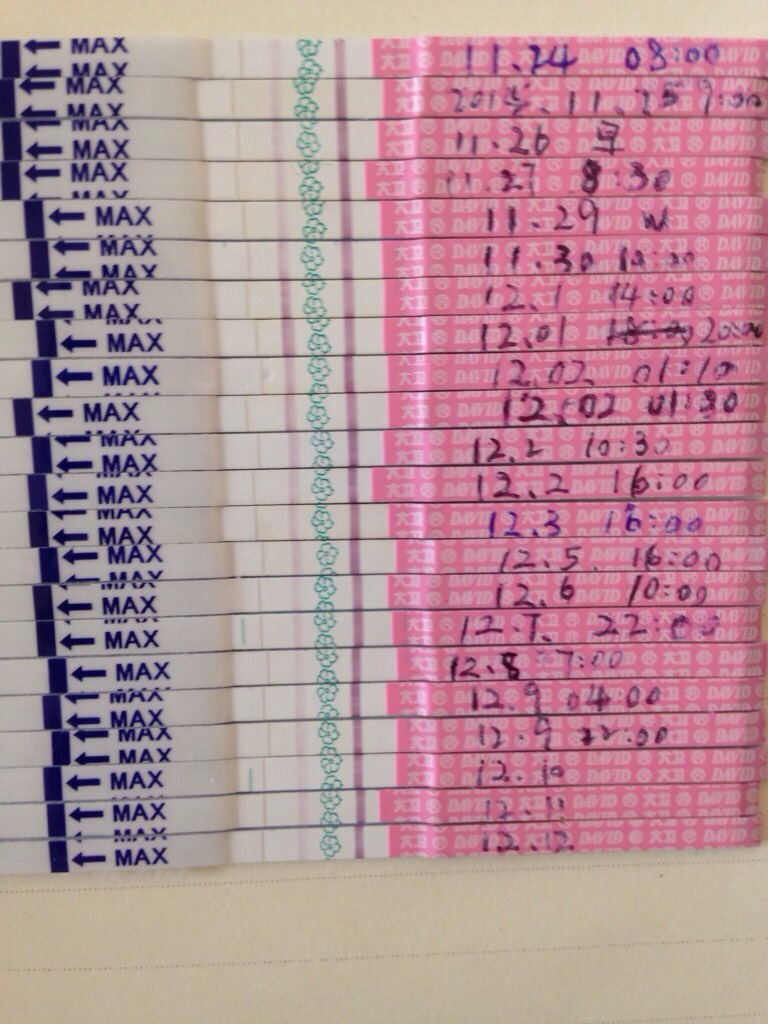 MAX 11.24 08:00
MAX 11.25 9:00
MAX 11.26 早
MAX 11.27 8:30
MAX 11.29
MAX 11.30
MAX 12.1 14:00
MAX 12.01 20:00
MAX 12.02 01:10
MAX 12.02 01:30
MAX 12.2 10:30
MAX 12.2 16:00
MAX 12.3 16:00
MAX 12.5. 16:00
MAX 12.6 10:00
MAX 12.7. 22:00
MAX 12.8 7:00
MAX 12.9 04:00
MAX 12.9 22:00
MAX 12.10
MAX 12.11
MAX 12.12
大卫 DAVID